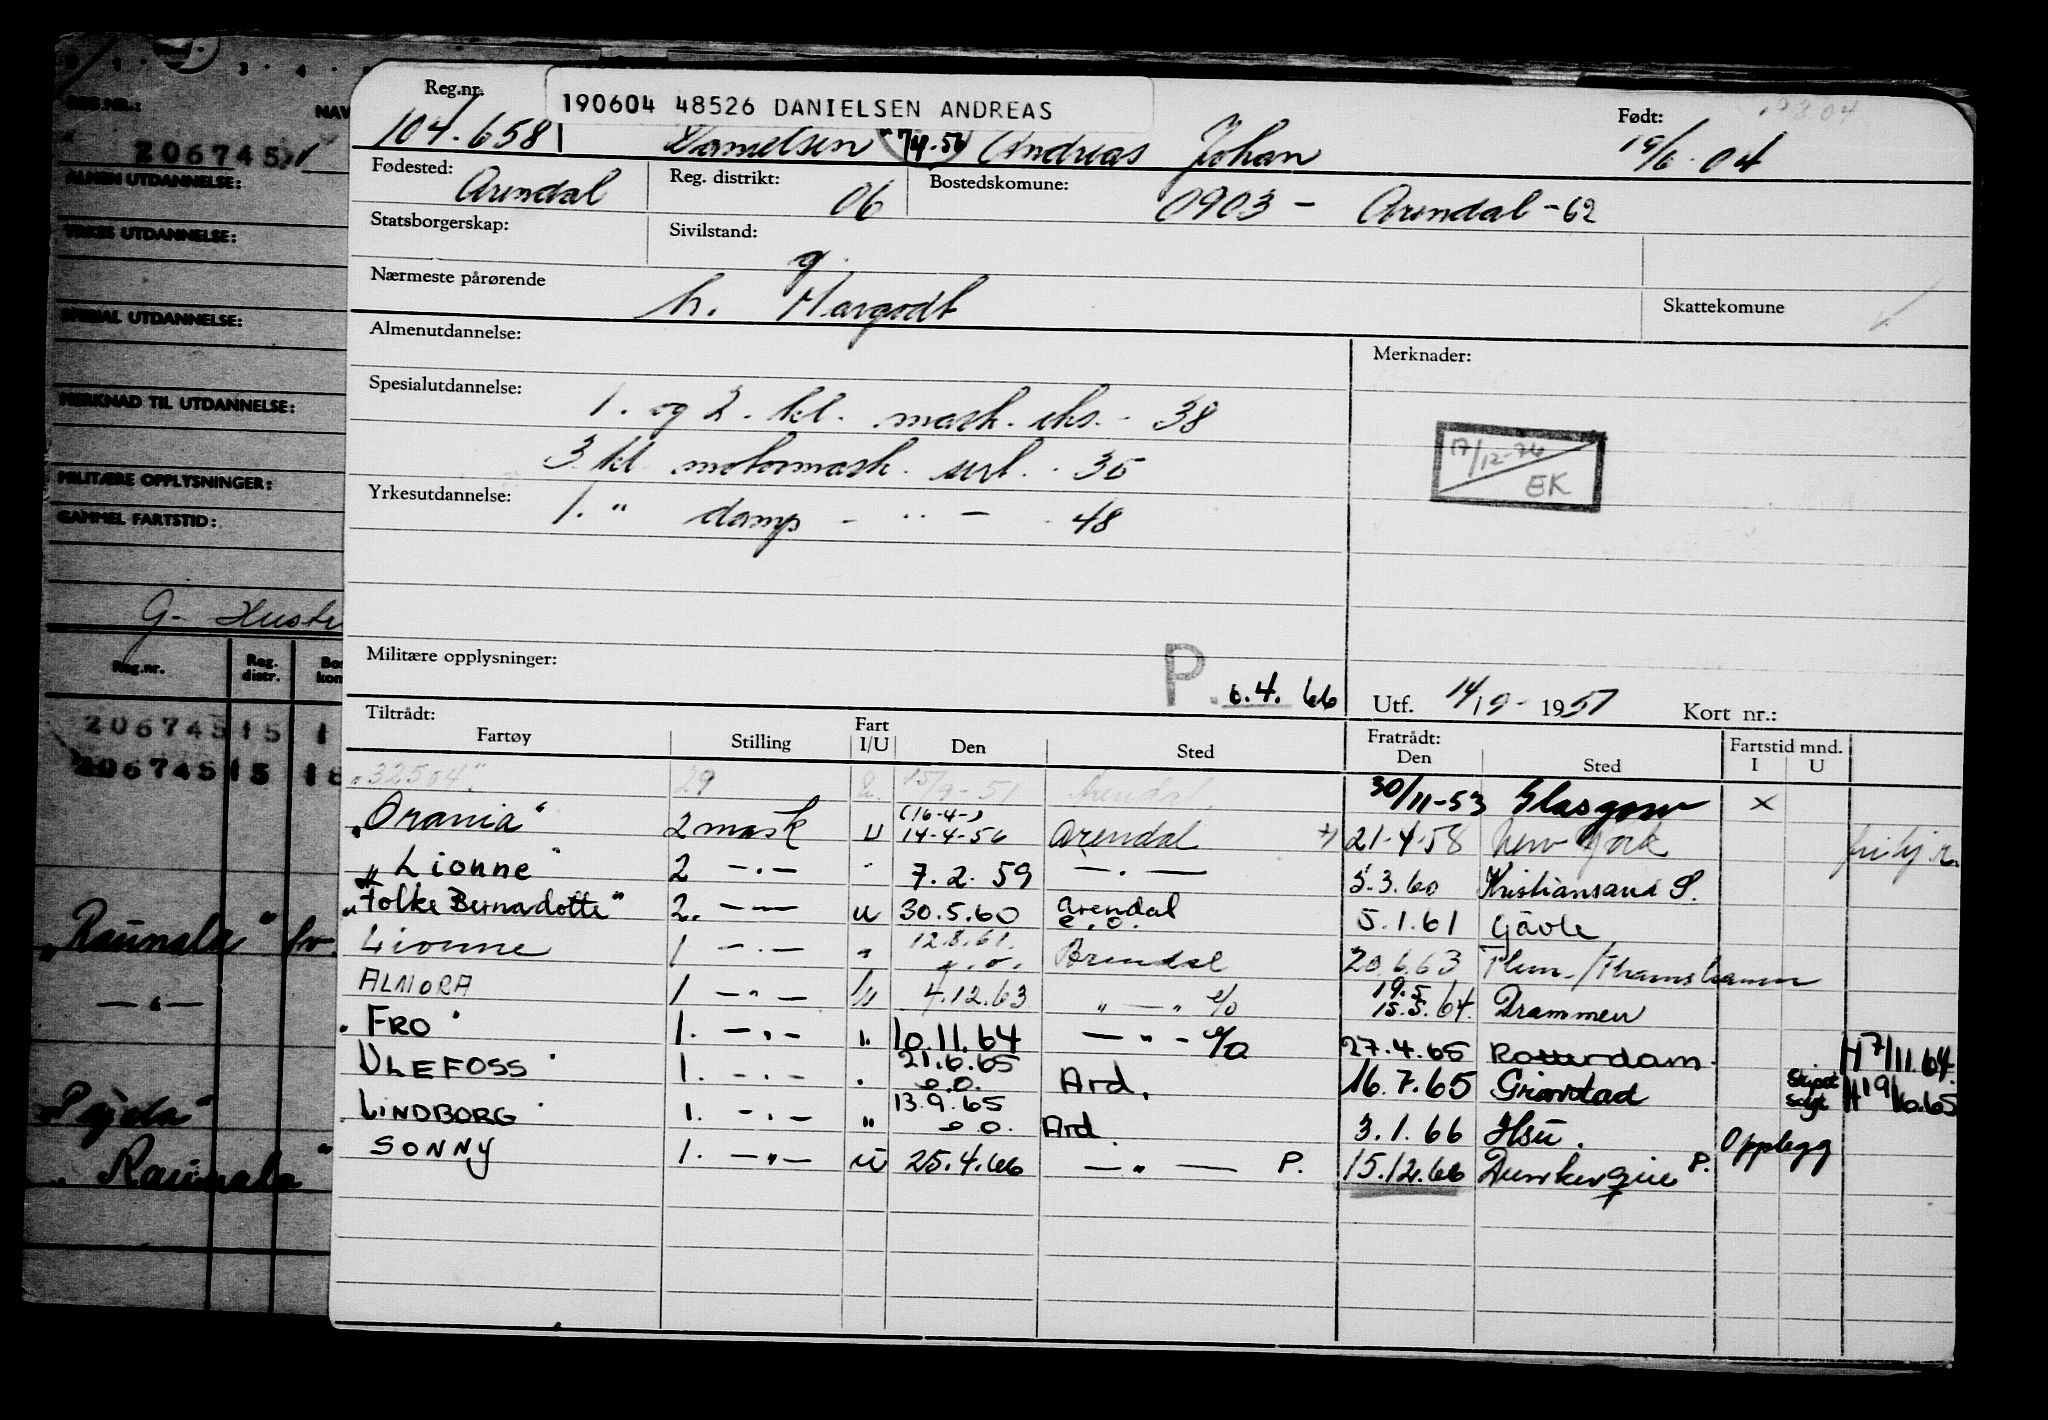 Reg.nr.
190604 48526 DANIELSEN ANDREAS
Født:
104.658 Danielsen 7/4-56 Andreas Johan 19/6-04
Fødested: Arendal Reg. distrikt: 06 Bostedskomune: 0903 - Arendal -62
Statsborgerskap: Sivilstand: g.
Nærmeste pårørende h. Margodt Skattekomune
Almenutdannelse: Merknader:
Spesialutdannelse: 1. og 2. kl. mask. eks. - 38
3 kl. motormask. sert. - 35
17/12-74 EK
Yrkesutdannelse: 1. " damp - " - - 48
Militære opplysninger: P. 6.4.66 Utf. 14/9- 1951 Kort nr.:
Tiltrådt: Fratrådt:
Fartøy Stilling Fart I/U Den Sted Den Sted Fartstid mnd. I U
"32504" 29 15/9-51 Arendal. 30/11-53 Glasgow x
"Orania" 2 mask U (16-4-) 14-4-56 Arendal 21-4-58 New York
"Lionne" 2 -.- " 7.2.59 -.- 5.3.60 Kristiansand S.
"Folke Bernadotte" 2. -"- u 30.5.60 Arendal e.o. 5.1.61 Gävle
Lionne 1 -.- " 12.8.61. e.o. Arendal 20.6.63 /Thamshamn
ALMORA 1 -"- U 4.12.63 "-" e/o 19.5 15.5.64. Drammen
"FRO" 1. -"- " 10.11.64 -"- e/o 27.4.65 Rotterdam. H 7/11.64.
ULEFOSS" 1. -.- " 21.6.65 e.o. Ard. 16.7.65 Grimstad Skipet solgt H 19/6.65
LINDBORG" 1. -.- " 13.9.65 e.o. Ard. 3.1.66 Hsu. Opplegg
SONNY 1. -"- U 25.4.66 -"- P. 15.12.66 Dunkerque P.
REG.NR.: NAV
206745
ALMEN UTDANNELSE:
YRKES UTDANNELSE:
SPESIAL UTDANNELSE:
MERKNAD TIL UTDANNELSE:
MILITÆRE OPPLYSNINGER:
GAMMEL FARTSTID:
G- Hustr
Reg.nr. Reg. distr. Bos kom
206745 15 1
206745 15 18
"Raunala"
-"-
"Pajala"
"Raunala"